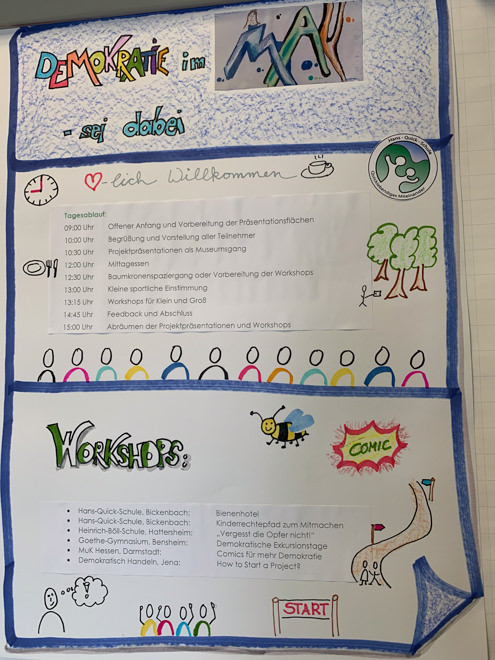 DEMOKRATIE im MAI
- sei dabei
Hans - Quick - Schule
-lich Willkommen
Tagesablauf:
09:00 Uhr Offener Anfang und Vorbereitung der Präsentationsflächen
10:00 Uhr Begrüßung und Vorstellung aller Teilnehmer
10:30 Uhr Projektpräsentationen als Museumsgang
12:00 Uhr Mittagessen
12:30 Uhr Baumkronenspaziergang oder Vorbereitung der Workshops
13:00 Uhr Kleine sportliche Einstimmung
13:15 Uhr Workshops für Klein und Groß
14:45 Uhr Feedback und Abschluss
15:00 Uhr Abräumen der Projektpräsentationen und Workshops
WORKSHOPS:
COMIC
• Hans-Quick-Schule, Bickenbach: Bienenhotel
• Hans-Quick-Schule, Bickenbach: Kinderrechtepfad zum Mitmachen
• Heinrich-Böll-Schule, Hattersheim: „Vergesst die Opfer nicht!"
• Goethe-Gymnasium, Bensheim: Demokratische Exkursionstage
• MuK Hessen, Darmstadt: Comics für mehr Demokratie
• Demokratisch Handeln, Jena: How to Start a Project?
!
START